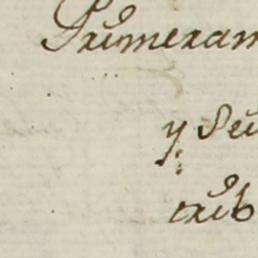 Primeram
y Seu
trib